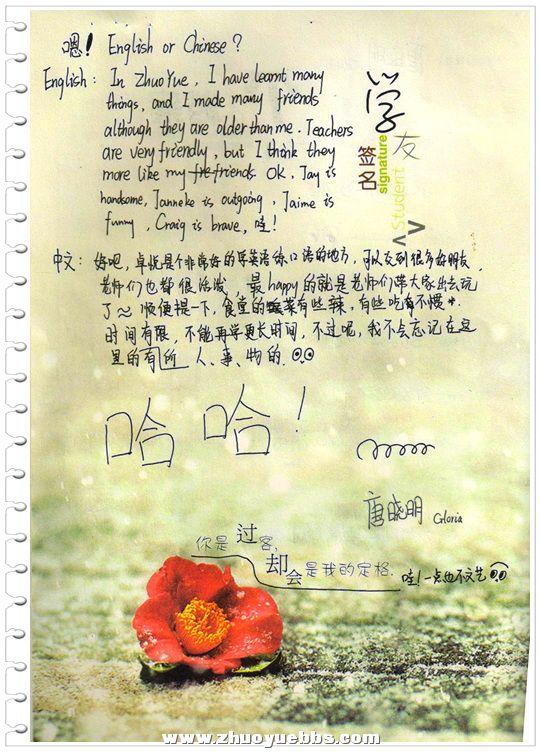 嗯! English or Chinese?
English: In ZhuoYue, I have learnt many
things, and I made many friends
although they are older than me. Teachers
are very friendly, but I think they
more like my friends. Ok, Jay is
handsome, Janneke is outgoing, Jaime is
funny, Craig is brave, 哇!
学友
签名
signature
Student
中文: 好吧,卓悦是个非常好的学英语练口语的地方,可以交到很多好朋友,
老师们也都很活泼,最happy的就是老师们带大家出去玩
了~ 顺便提一下,食堂的菜有些辣,有些吃有不惯*.
时间有限,不能再学更长时间,不过呢,我不会忘记在这
里的有所人、事、物的.
哈哈!
唐晓明 Gloria
你是过客,
却会是我的定格.
哇!一点也不文艺
www.zhuoyuebbs.com